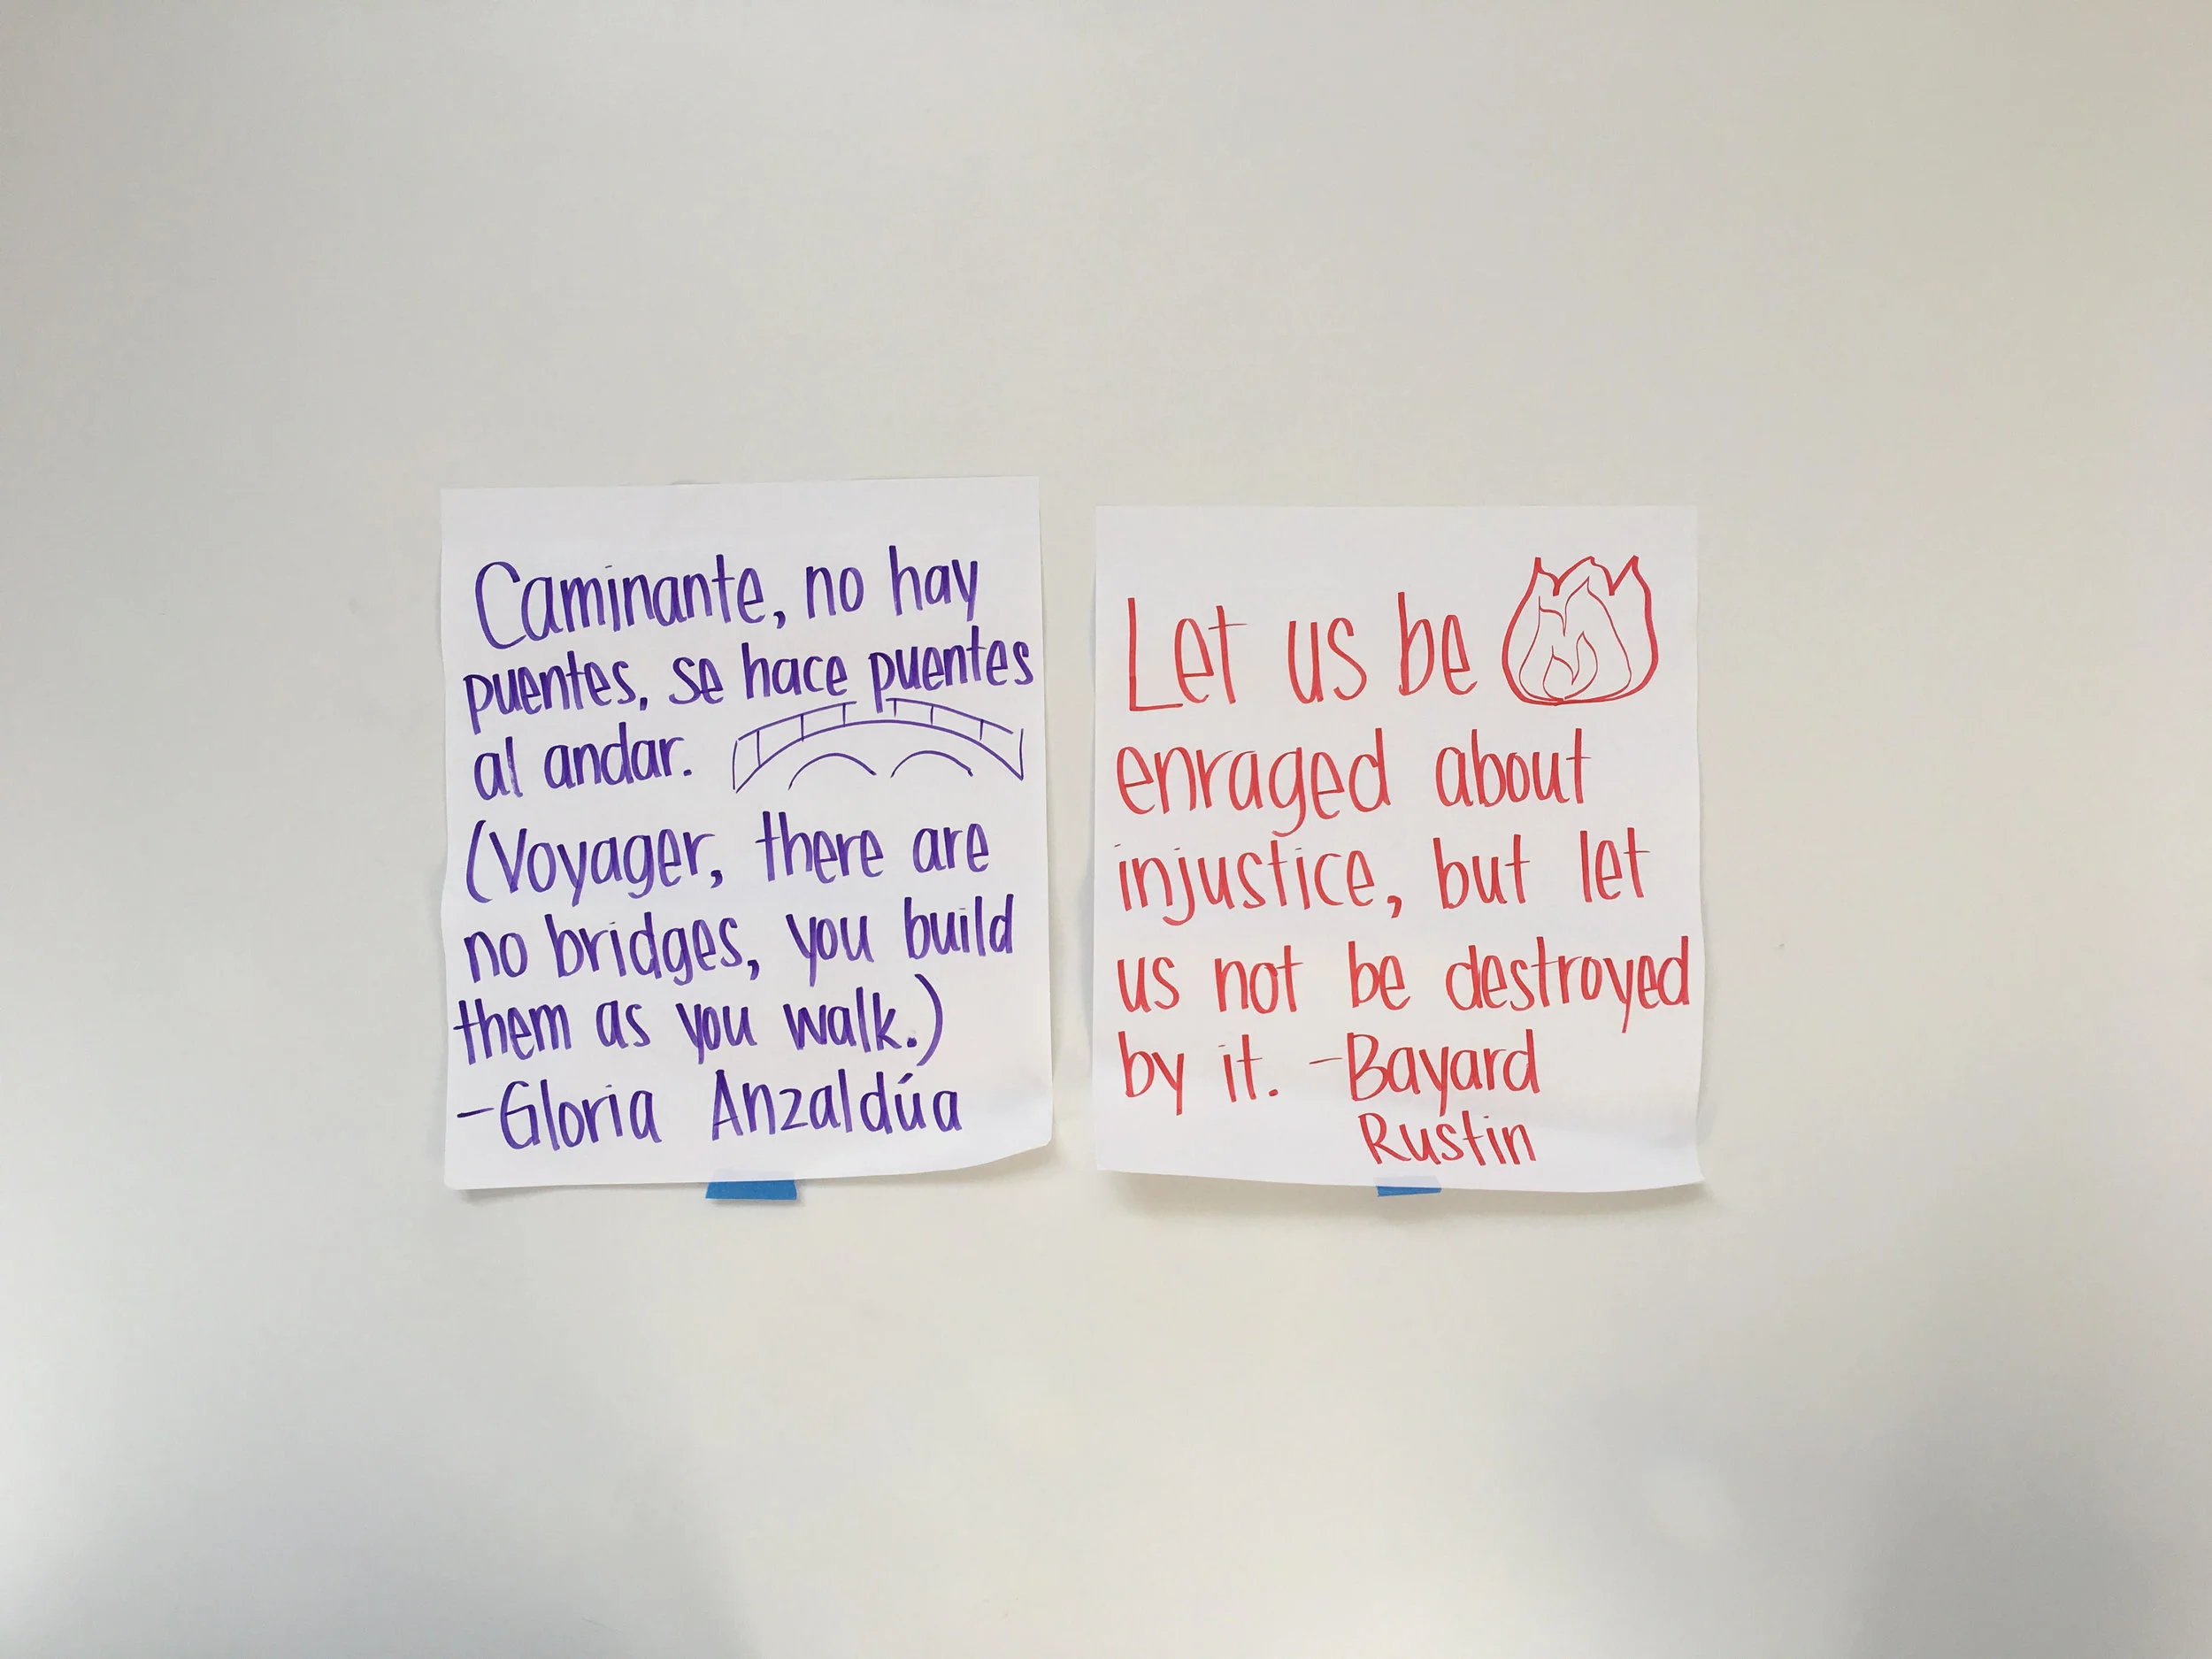 Caminante, no hay
puentes, se hace puentes
al andar.
(Voyager, there are
no bridges, you build
them as you walk.)
-Gloria Anzaldúa
Let us be
enraged about
injustice, but let
us not be destroyed
by it. -Bayard
Rustin